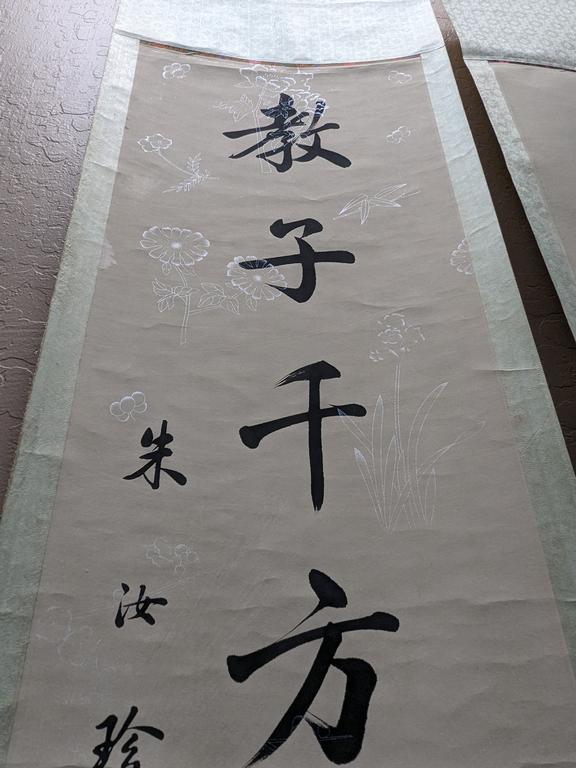 教子千方
朱汝珍